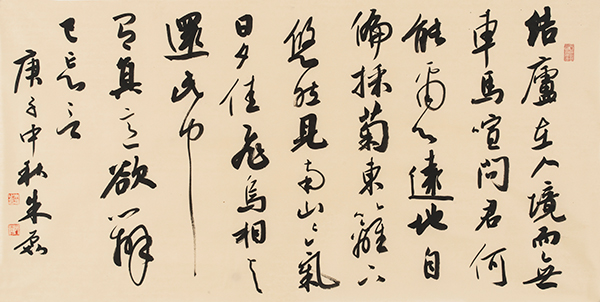 結廬在人境而無
車馬喧問君何
能爾心遠地自
偏採菊東籬下
悠然見南山々氣
日夕佳飛鳥相与
還此中
有真意欲辨
已忘言
庚子中秋朱